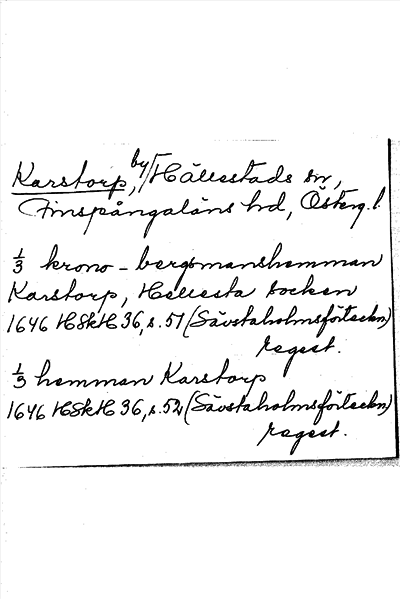 Karstorp, by, Hällestads sn,
Finspångaläns hd, Österg. l.
1/3 krono-bergsmanshemman
Karstorp, Hellesta socken
1646 HSkH 36, s. 51 (Sävstaholmsförteckn)
regest.
1/3 hemman Karstorp
1646 HSkH 36, s. 52 (Sävstaholmsförteckn)
regest.